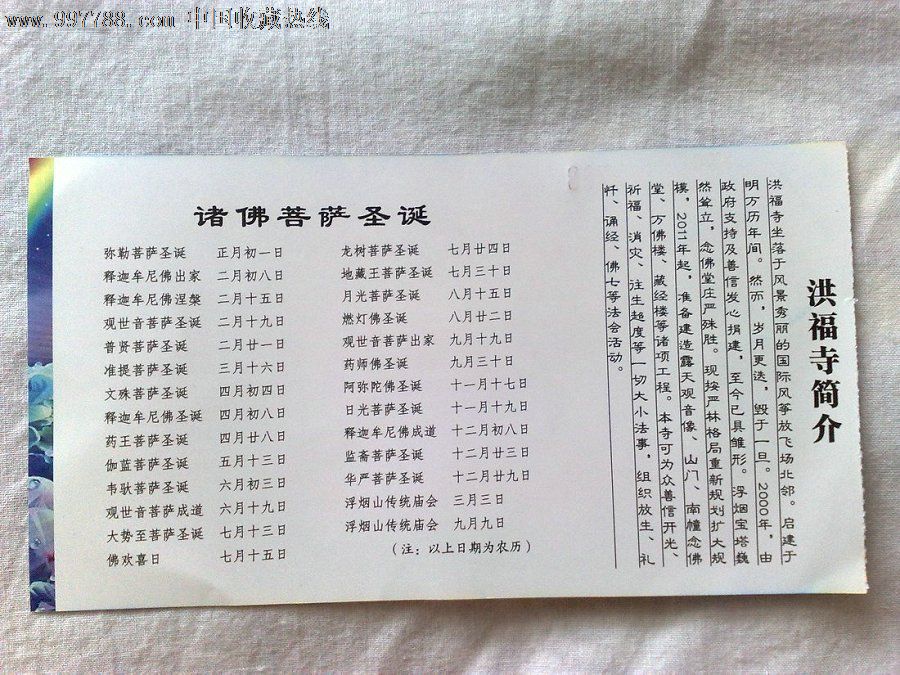 www.997788.com 中国收藏热线
诸佛菩萨圣诞
弥勒菩萨圣诞 正月初一日
释迦牟尼佛出家 二月初八日
释迦牟尼佛涅槃 二月十五日
观世音菩萨圣诞 二月十九日
普贤菩萨圣诞 二月廿一日
准提菩萨圣诞 三月十六日
文殊菩萨圣诞 四月初四日
释迦牟尼佛圣诞 四月初八日
药王菩萨圣诞 四月廿八日
伽蓝菩萨圣诞 五月十三日
韦驮菩萨圣诞 六月初三日
观世音菩萨成道 六月十九日
大势至菩萨圣诞 七月十三日
佛欢喜日 七月十五日
龙树菩萨圣诞 七月廿四日
地藏王菩萨圣诞 七月三十日
月光菩萨圣诞 八月十五日
燃灯佛圣诞 八月廿二日
观世音菩萨出家 九月十九日
药师佛圣诞 九月三十日
阿弥陀佛圣诞 十一月十七日
日光菩萨圣诞 十一月十九日
释迦牟尼佛成道 十二月初八日
监斋菩萨圣诞 十二月廿三日
华严菩萨圣诞 十二月廿九日
浮烟山传统庙会 三月三日
浮烟山传统庙会 九月九日
（注：以上日期为农历）
洪福寺简介
洪福寺坐落于风景秀丽的国际风筝放飞场北邻。启建于
明万历年间。然而，岁月更迭，毁于一旦。2000年，由
政府支持及善信发心捐建，至今已具雏形。浮烟宝塔巍
然耸立，念佛堂庄严殊胜。现按严林格局重新规划扩大规
模，2011年起，准备建造露天观音像、山门、南幢念佛
堂、万佛楼、藏经楼等诸项工程。本寺可为众善信开光、
祈福、消灾、往生超度等一切大小法事，组织放生、礼
忏、诵经、佛七等法会活动。